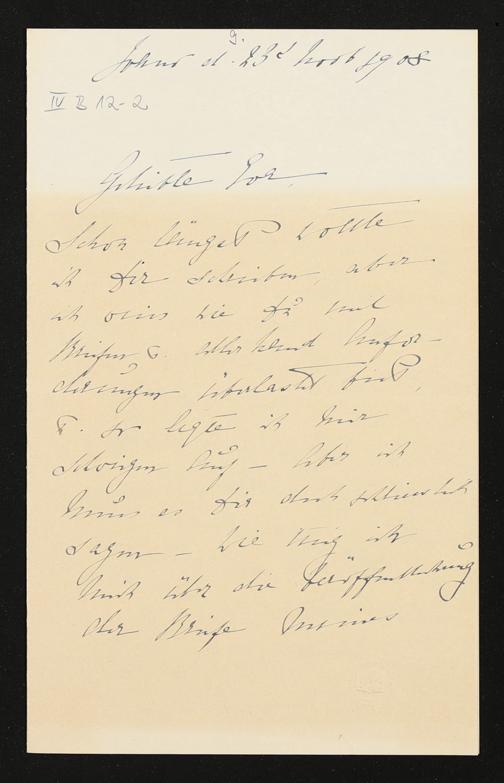 d. 23ᵗ Novb 1908
IV B 12-2
Geliebte Eva,
Schon längst wollte
ich Dir schreiben, aber
ich weis wie Du mit
Briefen u. allerhand Anfor-
derungen überlastet bist,
u. so legte ich mir
schweigen auf – Aber ich
muss es Dir doch schliesslich
sagen – wie ich
mich über die Veröffentlichung
der Briefe meines